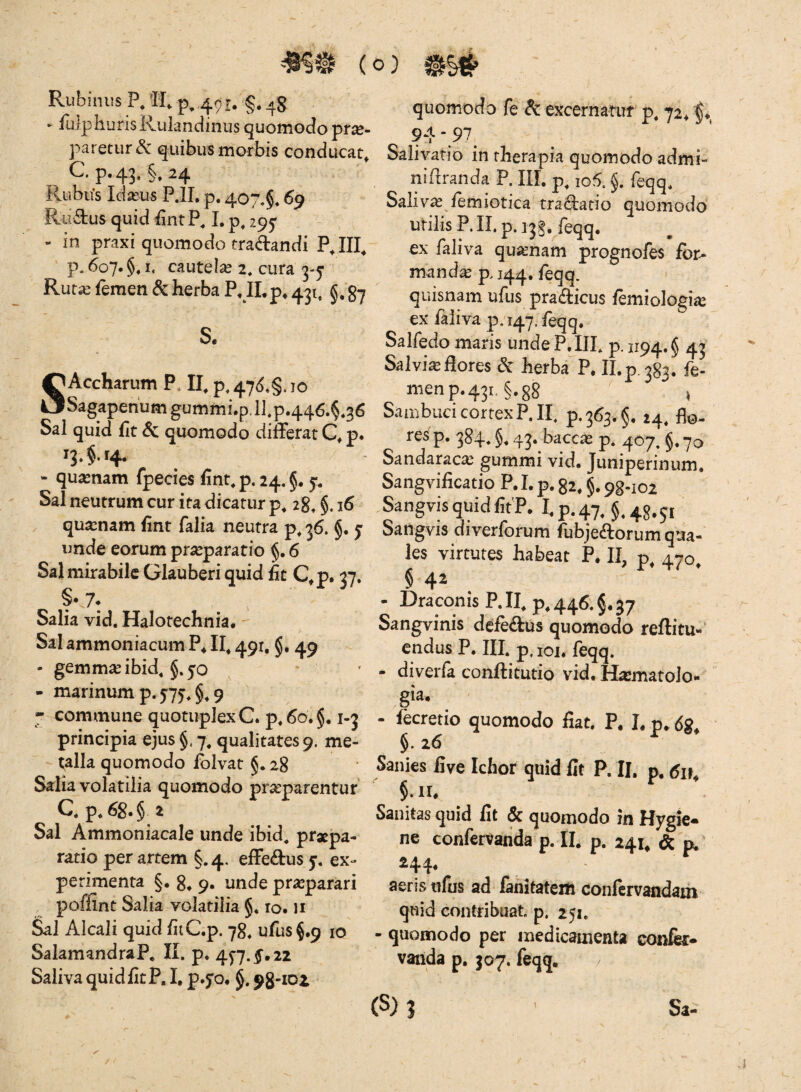 (o)
Rubinus P. II. p. 491. §. 48
- sulphuris Rulandinus quomodo præ-
paretur & quibus morbis conducat.
C. p. 43. §. 24
Rubus Idæus P. II. p. 407. §. 69
Ructus quid sint P. I. p. 295
- in praxi quomodo tractandi P. III.
p. 607. §. 1. cautelæ 2. cura 3-5
Rutæ semen & herba P. II. p. 431. §. 87
S.
SAccharum P. II. p. 476. §. 10
Sagapenum gummi. p. II. p. 446. §. 36
Sal quid sit & quomodo differat C. p.
13. §. 14.
- quænam species sint. p. 24. §. 5.
Sal neutrum cur ita dicatur p. 28. §. 16
quænam sint salia neutra p. 36. §. 5
unde eorum præparatio §. 6
Sal mirabile Glauberi quid sit C. p. 37.
§. 7.
Salia vid. Halotechnia.
Sal ammoniacum P. II. 491. §. 49
- gemmæ ibid. §. 50
- marinum p. 575. §. 9
- commune quotuplex C. p. 60. §. 1-3
principia ejus §. 7. qualitates 9. me-
talla quomodo solvat §. 28
Salia volatilia quomodo præparentur
C. p. 68. § 2
Sal Ammoniacale unde ibid. præpa-
ratio per artem §. 4. effectus 5. ex-
perimenta §. 8. 9. unde præparari
possint Salia volatilia §. 10. 11
Sal Alcali quid sit C. p. 78. usus §. 9 10
Salamandra P. II. p. 457. §. 22
Saliva quid sit P. I. p. 50. §. 98-102
quomodo se & excernatur p. 72. §.
94 - 97
Salivatio in therapia quomodo admi-
nistranda P. III. p. 106. §. seqq.
Salivæ semiotica tractatio quomodo
utilis P. II. p. 138. seqq.
ex saliva quænam prognoses for-
mandæ p. 144. seqq.
quisnam usus practicus semiologiæ
ex saliva p. 147. seqq.
Salsedo maris unde P. III. p. 1194. § 43
Salviæ flores & herba P. II. p. 383. se-
men p. 431. §. 88
Sambuci cortex P. II. p. 363. §. 24. flo-
res p. 384. §. 43. baccæ p. 407. §. 70
Sandaracæ gummi vid. Juniperinum.
Sangvificatio P. I. p. 82. §. 98-102
Sangvis quid sit P. I. p. 47. §. 48. 51
Sangvis diversorum subjectorum qua-
les virtutes habeat P. II, p. 470.
§ 42
- Draconis P. II. p. 446. §. 37
Sangvinis defectus quomodo restitu-
endus P. III. p. 101. seqq.
- diversa constitutio vid. Hæmatolo-
gia.
- secretio quomodo fiat. P. I. p. 68.
§. 26
Sanies sive Ichor quid sit P. II. p. 611.
§. 11.
Sanitas quid sit & quomodo in Hygie-
ne conservanda p. II. p. 241. & p.
244.
aeris usus ad sanitatem conservandam
quid contribuat. p. 251.
- quomodo per medicamenta conser-
vanda p. 307. seqq.
(S) 3 Sa-